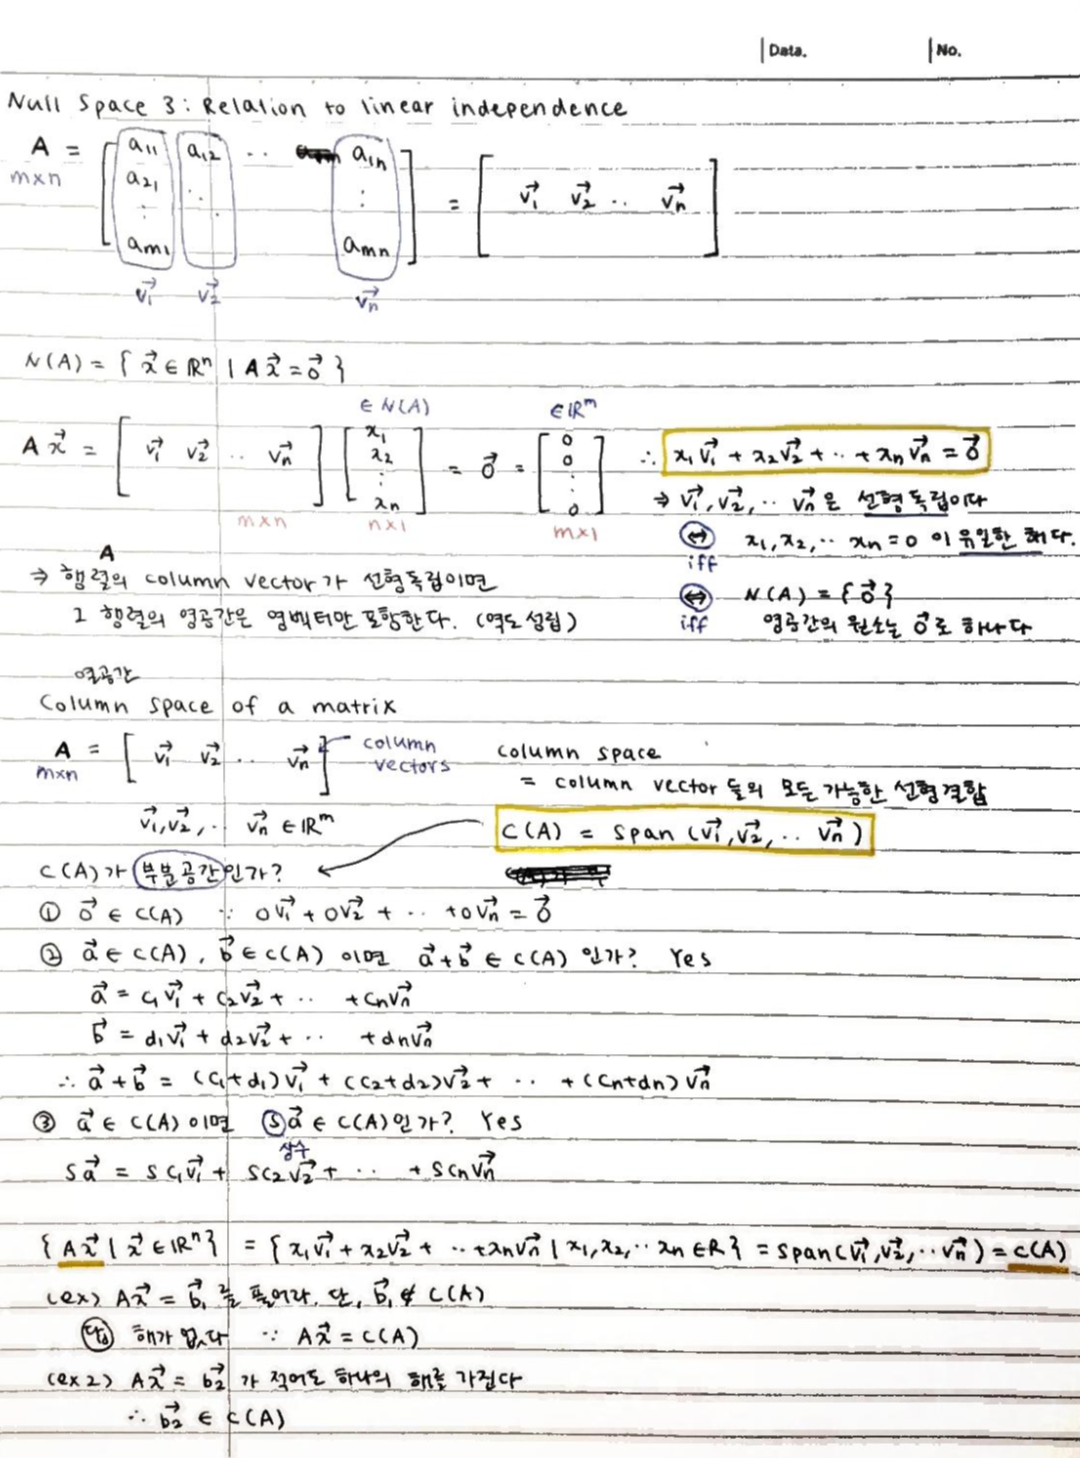 Data. No.
Null Space 3 : Relation to linear independence
A = [ a11 a12 ·· a1n ] = [ v1→ v2→ ·· vn→ ]
m×n a21 ⋮ ⋮
am1 amn
v1→ v2→ vn→
N(A) = { x→ ∈ ℝⁿ | A x→ = 0→ }
∈ N(A) ∈ ℝᵐ
A x→ = [ v1→ v2→ ·· vn→ ] [ x1 x2 ⋮ xn ] = 0→ = [ 0 0 ⋮ 0 ] ∴ x1v1→ + x2v2→ + ·· + xnvn→ = 0→
m×n n×1 m×1
⇒ v1→, v2→, ·· vn→은 선형독립이다
⇔ x1, x2, ·· xn = 0 이 유일한 해다.
iff
A
⇒ 행렬의 column vector가 선형독립이면
그 행렬의 영공간은 영벡터만 포함한다. (역도 성립)
⇔ N(A) = {0→}
iff 영공간의 원소는 0→로 하나다
열공간
Column space of a matrix
A = [ v1→ v2→ ·· vn→ ] column vectors
m×n
v1→, v2→, ·· vn→ ∈ ℝᵐ
column space
= column vector 들의 모든 가능한 선형결합
C(A) = span (v1→, v2→, ·· vn→)
C(A)가 부분공간인가?
① 0→ ∈ C(A) ∵ 0v1→ + 0v2→ + ·· + 0vn→ = 0→
② a→ ∈ C(A), b→ ∈ C(A) 이면 a→+b→ ∈ C(A) 인가? Yes
a→ = c1v1→ + c2v2→ + ·· + cnvn→
b→ = d1v1→ + d2v2→ + ·· + dnvn→
∴ a→+b→ = (c1+d1)v1→ + (c2+d2)v2→ + ·· + (cn+dn)vn→
③ a→ ∈ C(A) 이면 Sa→ ∈ C(A)인가? Yes
상수
Sa→ = Sc1v1→ + Sc2v2→ + ·· + Scnvn→
{ Ax→ | x→ ∈ ℝⁿ } = { x1v1→ + x2v2→ + ·· + xnvn→ | x1, x2, ·· xn ∈ R } = span(v1→, v2→, ·· vn→) = C(A)
(ex) Ax→ = b1→ 를 풀어라. 단, b1→ ∉ C(A)
답 해가 없다 ∵ Ax→ = C(A)
(ex2) Ax→ = b2→ 가 적어도 하나의 해를 가진다
∴ b2→ ∈ C(A)